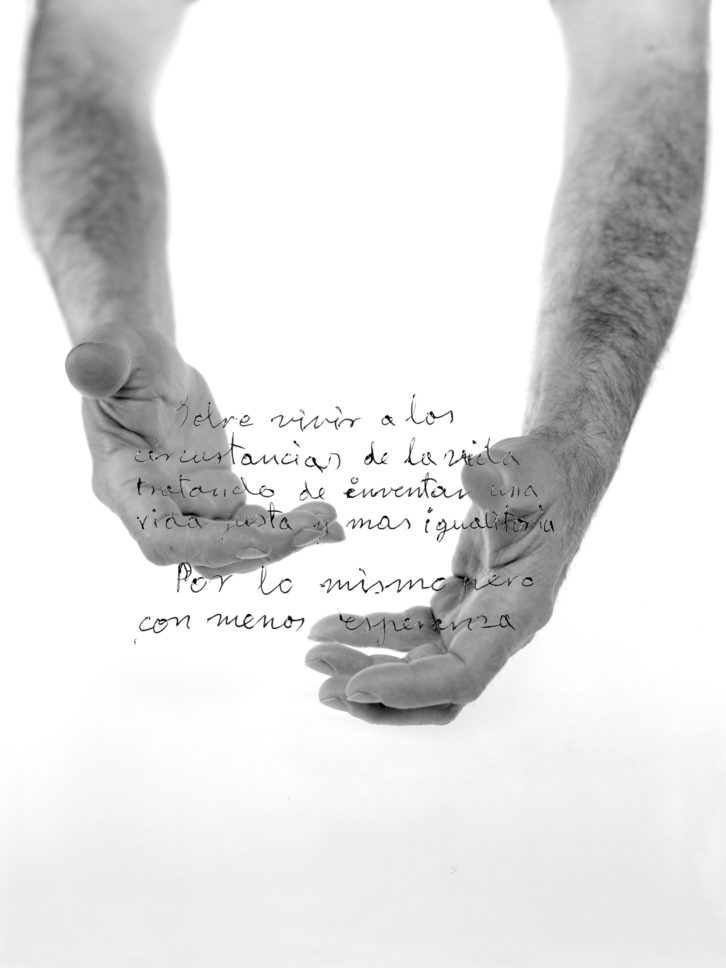 Sobre vivir a los
circustancias de la vida
tratando de inventar una
vida justa y mas igualitoria
Por lo mismo pero
con menos esperanza